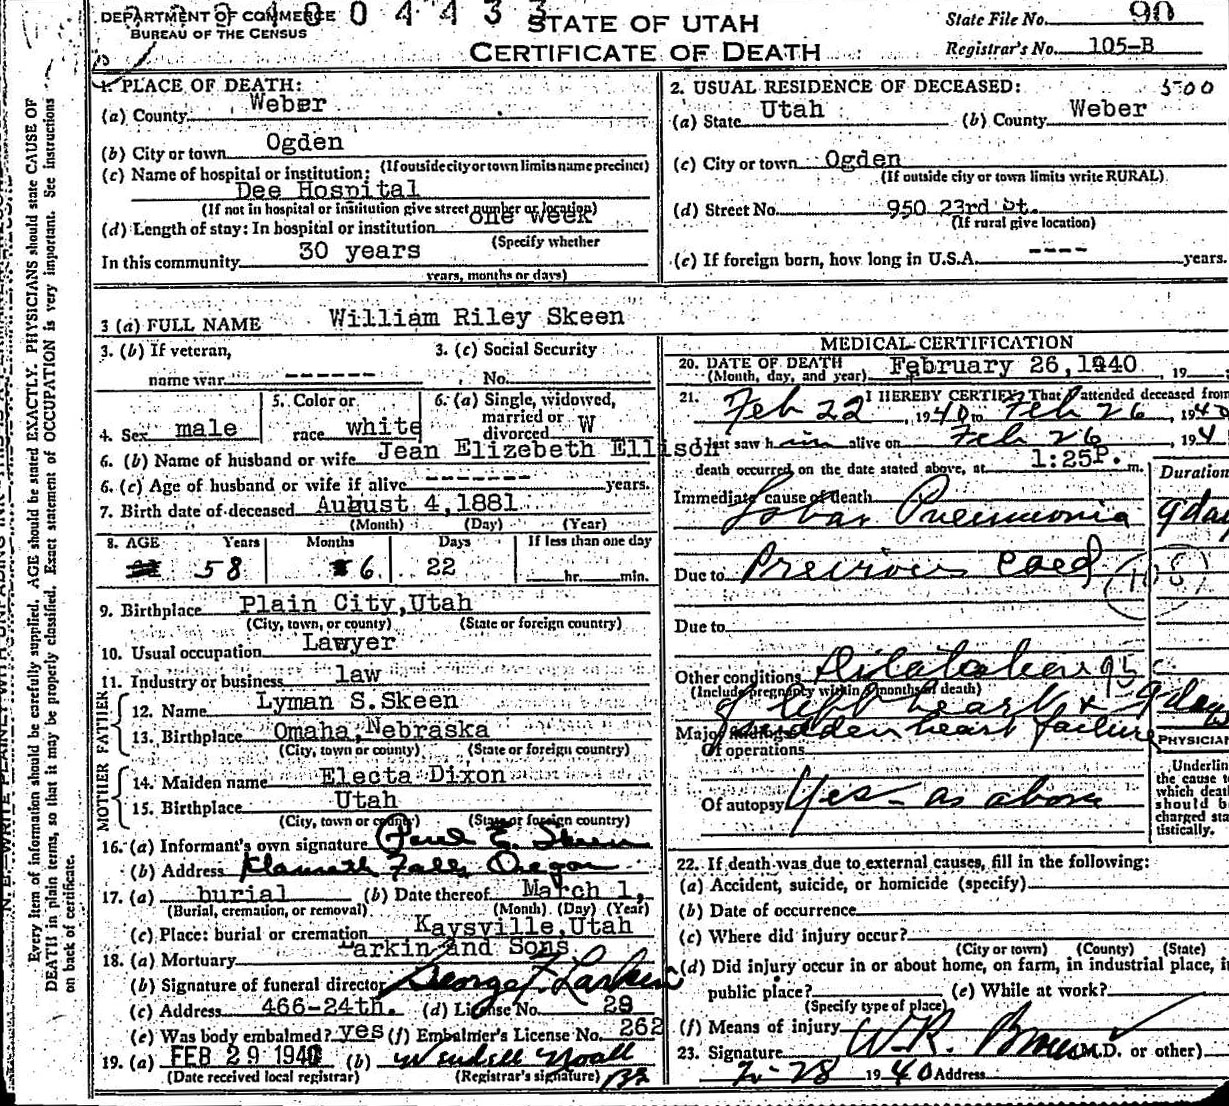 DEPARTMENT OF COMMERCE
BUREAU OF THE CENSUS
0 4 4 3 3
STATE OF UTAH
CERTIFICATE OF DEATH
State File No. 90
Registrar's No. 105-B
Every item of information should be carefully supplied. AGE should be stated EXACTLY. PHYSICIANS should state CAUSE OF
DEATH in plain terms, so that it may be properly classified. Exact statement of OCCUPATION is very important. See instructions
on back of certificate.
1. PLACE OF DEATH:
(a) County Weber
(b) City or town Ogden
(If outside city or town limits name precinct)
(c) Name of hospital or institution:
Dee Hospital
(If not in hospital or institution give street number or location)
(d) Length of stay: In hospital or institution one week
(Specify whether
In this community 30 years
years, months or days)
2. USUAL RESIDENCE OF DECEASED: 500
(a) State Utah (b) County Weber
(c) City or town Ogden
(If outside city or town limits write RURAL)
(d) Street No. 950 23rd St.
(If rural give location)
(e) If foreign born, how long in U.S.A. ---- years.
3 (a) FULL NAME William Riley Skeen
3. (b) If veteran, 3. (c) Social Security
name war ------ No.
4. Sex male 5. Color or race white 6. (a) Single, widowed, married or divorced W
6. (b) Name of husband or wife Jean Elizebeth Ellison
6. (c) Age of husband or wife if alive ------- years.
7. Birth date of deceased August 4, 1881
(Month) (Day) (Year)
8. AGE Years Months Days If less than one day
58 6 22 hr. min.
9. Birthplace Plain City, Utah
(City, town, or county) (State or foreign country)
10. Usual occupation Lawyer
11. Industry or business law
FATHER
12. Name Lyman S. Skeen
13. Birthplace Omaha, Nebraska
(City, town or county) (State or foreign country)
MOTHER
14. Maiden name Electa Dixon
15. Birthplace Utah
(City, town or county) (State or foreign country)
16. (a) Informant's own signature Paul E. Skeen
(b) Address Klamath Falls, Oregon
17. (a) burial (b) Date thereof March 1,
(Burial, cremation, or removal) (Month) (Day) (Year)
(c) Place: burial or cremation Kaysville, Utah
18. (a) Mortuary Larkin and Sons
(b) Signature of funeral director George F. Larkin
(c) Address 466-24th. (d) License No. 29
(e) Was body embalmed? yes (f) Embalmer's License No. 262
19. (a) FEB 29 1940 (b) Wendell Noall
(Date received local registrar) (Registrar's signature)
MEDICAL CERTIFICATION
20. DATE OF DEATH
(Month, day, and year) February 26, 1940, 19
21. I HEREBY CERTIFY That I attended deceased from
Feb 22, 1940 to Feb 26, 1940
I last saw him alive on Feb 26, 194
death occurred on the date stated above, at 1:25P. m.
Duration
Immediate cause of death
Lobar Pneumonia 9 day
Due to Previous cold
Due to
Other conditions Dilatation 95c
(Include pregnancy within 3 months of death)
of left heart & 9 day
Major findings: sudden heart failure
Of operations
PHYSICIAN
Underlin
the cause t
which deat
should b
charged sta
tistically.
Of autopsy Yes - as above
22. If death was due to external causes, fill in the following:
(a) Accident, suicide, or homicide (specify)
(b) Date of occurrence
(c) Where did injury occur?
(City or town) (County) (State)
(d) Did injury occur in or about home, on farm, in industrial place, in
public place? (e) While at work?
(Specify type of place)
(f) Means of injury
23. Signature W.R. M.D. or other)
2-28 1940 Address